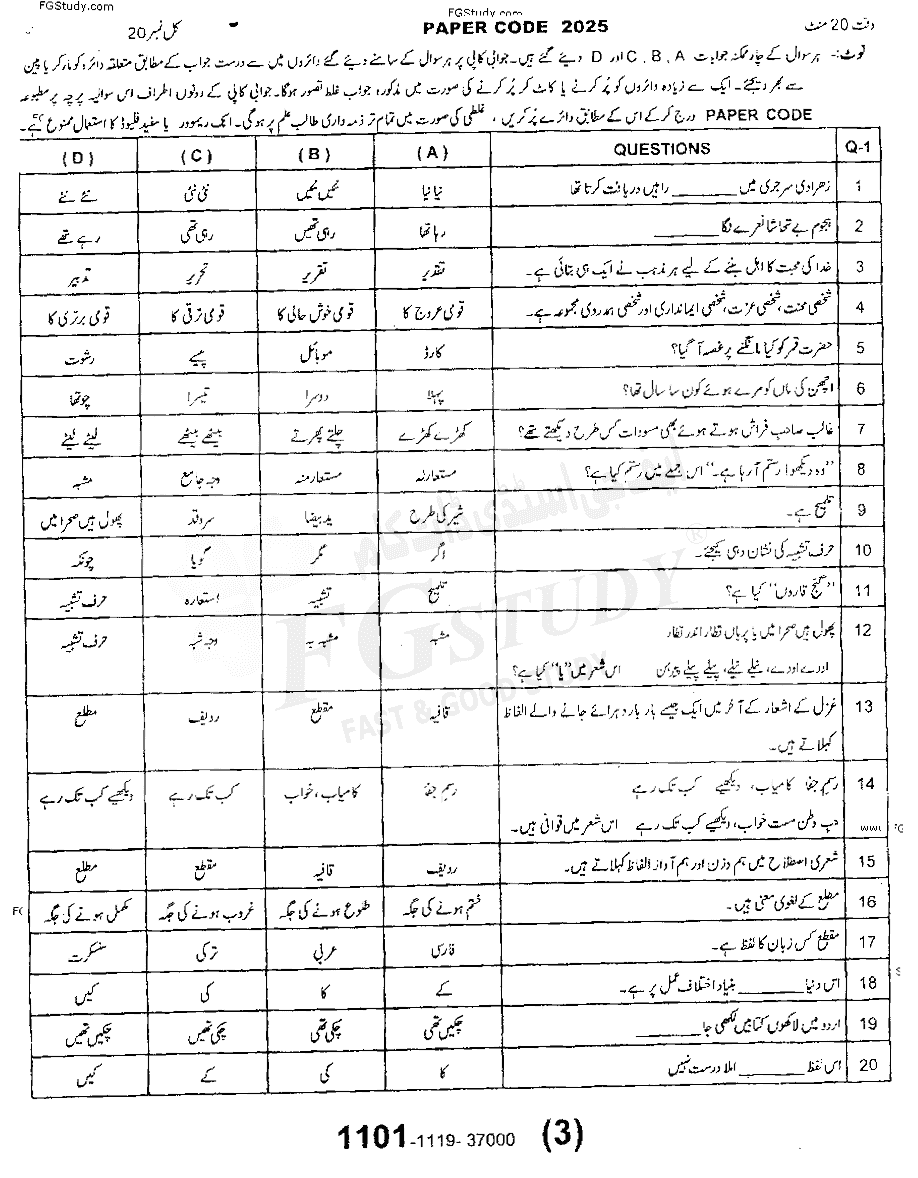 FGStudy.com
FGStudy.com
وقت 20 منٹ PAPER CODE 2025 کل نمبر 20
نوٹ:۔ ہر سوال کے چار ممکنہ جوابات A ، B ، C اور D دیئے گئے ہیں۔ جوابی کاپی پر ہر سوال کے سامنے دیئے گئے دائروں میں سے درست جواب کے مطابق متعلقہ دائرہ کو مارکر یا پین
سے بھر دیجئے۔ ایک سے زیادہ دائروں کو پُر کرنے یا کاٹ کر پُر کرنے کی صورت میں مذکورہ جواب غلط تصور ہوگا۔ جوابی کاپی کے دونوں اطراف اس سوالیہ پرچہ پر مطبوعہ
PAPER CODE درج کر کے اس کے مطابق دائرے پُر کریں ، غلطی کی صورت میں تمام تر ذمہ داری طالب علم پر ہوگی۔ انک ریموور یا سفید فلیوڈ کا استعمال ممنوع ہے۔
Q-1 QUESTIONS (A) (B) (C) (D)
1 زہراوی سرجری میں ______ راہیں دریافت کرتا تھا نیا نیا نئیں نئیں نئی نئی نئے نئے
2 ہجوم بے تحاشا نعرے لگا ______ رہا تھا رہی تھیں رہی تھی رہے تھے
3 خدا کی محبت کا اہل بننے کے لیے ہر مذہب نے ایک ہی بتائی ہے۔ تقدیر تقریر تحریر تدبیر
4 شخصی محنت، شخصی عزت، شخصی ایمانداری اور شخصی ہمدردی مجموعہ ہے۔ قومی عروج کا قومی خوش حالی کا قومی ترقی کا قومی برتری کا
5 حضرت قمر کو کیا مانگنے پر غصہ آ گیا؟ کارڈ موبائل پیسے رشوت
6 اچھن کی ماں کو مرے ہوئے کون سا سال تھا؟ پہلا دوسرا تیسرا چوتھا
7 غالب صاحب فراش ہوتے ہوئے بھی مسودات کس طرح دیکھتے تھے؟ کھڑے کھڑے چلتے پھرتے بیٹھے بیٹھے لیٹے لیٹے
8 "وہ دیکھو! رستم آ رہا ہے۔" اس جملے میں رستم کیا ہے؟ مستعارلہ مستعارمنہ وجہ جامع مشبہ
9 تلمیح ہے۔ شیر کی طرح ید بیضا سرو قد پھول ہیں صحرا میں
10 حرف تشبیہ کی نشان دہی کیجئے۔ اگر مگر گویا چونکہ
11 "گنج قاروں" کیا ہے؟ تلمیح تشبیہ استعارہ حرف تشبیہ
12 پھول ہیں صحرا میں یا پریاں قطار اندر قطار
اودے اودے، نیلے نیلے، پیلے پیلے پیرہن اس شعر میں "یا" کیا ہے؟ مشبہ مشبہ بہ وجہ شبہ حرف تشبیہ
13 غزل کے اشعار کے آخر میں ایک جیسے بار بار دہرائے جانے والے الفاظ
کہلاتے ہیں۔ قافیہ مقطع ردیف مطلع
14 رسم جفا کامیاب، دیکھیے کب تک رہے رسم جفا کامیاب، خواب کب تک رہے دیکھیے کب تک رہے
حب وطن مست خواب، دیکھیے کب تک رہے اس شعر میں قوافی ہیں۔
15 شعری اصطلاح میں ہم وزن اور ہم آواز الفاظ کہلاتے ہیں۔ ردیف قافیہ مقطع مطلع
16 مطلع کے لغوی معنی ہیں۔ ختم ہونے کی جگہ طلوع ہونے کی جگہ غروب ہونے کی جگہ مکمل ہونے کی جگہ
17 مقطع کس زبان کا لفظ ہے۔ فارسی عربی ترکی سنسکرت
18 اس دنیا ______ بنیاد اختلاف عمل پر ہے۔ کے کا کی کیں
19 اردو میں لاکھوں کتابیں لکھی جا ______ چکیں تھی چکی تھی چکی تھیں چکیں تھیں
20 اس لفظ ______ املا درست نہیں کا کی کے کیں
ایف جی اسٹڈی ڈاٹ کام
FGSTUDY®
FAST & GOOD STUDY
1101-1119-37000 (3)